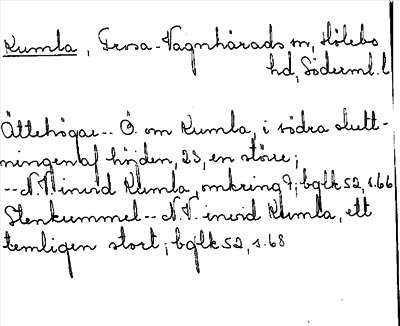 Kumla, Trosa-Vagnhärads sn, Hölebo
hd, Söderml. l
Ättehögar -- Ö. om Kumla, i södra slutt-
ningen af höjden, 23, en större;
-- N.V. invid Kumla, omkring 9; bglk 52, s. 66
Stenkummel -- N.V. invid Kumla, ett
temligen stort; bglk 52, s. 68